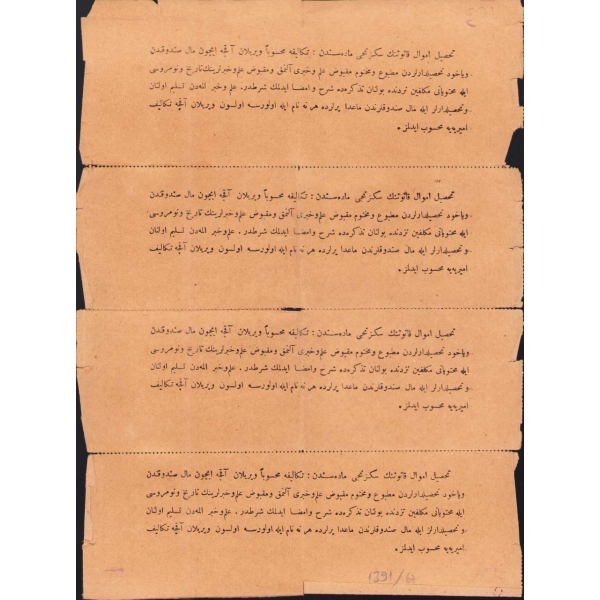 تحصیل اموال قانوننك سكزنجی ماده‌سندن : تكالیفه محسوباً ویریلان آقچه ایچون مال صندوقندن
ویاخود تحصیلدارلردن مطبوع ومختوم مقبوض علم وخبری آلنمق ومقبوض علم وخبرلرینك تاریخ ونومروسی
ایله محتویاتی مكلفین نزدنده بولنان تذكره‌ده شرح وامضا ایدلك شرطدر. علم وخبر المه‌دن تسلیم اولنان
وتحصیلدارلر ایله مال صندوقلرندن ماعدا یرلرده هر نه نام ایله اولورسه اولسون ویریلان آقچه تكالیف
امیریه‌یه محسوب ایدلمز .
تحصیل اموال قانوننك سكزنجی ماده‌سندن : تكالیفه محسوباً ویریلان آقچه ایچون مال صندوقندن
ویاخود تحصیلدارلردن مطبوع ومختوم مقبوض علم وخبری آلنمق ومقبوض علم وخبرلرینك تاریخ ونومروسی
ایله محتویاتی مكلفین نزدنده بولنان تذكره‌ده شرح وامضا ایدلك شرطدر. علم وخبر المه‌دن تسلیم اولنان
وتحصیلدارلر ایله مال صندوقلرندن ماعدا یرلرده هر نه نام ایله اولورسه اولسون ویریلان آقچه تكالیف
امیریه‌یه محسوب ایدلمز .
تحصیل اموال قانوننك سكزنجی ماده‌سندن : تكالیفه محسوباً ویریلان آقچه ایچون مال صندوقندن
ویاخود تحصیلدارلردن مطبوع ومختوم مقبوض علم وخبری آلنمق ومقبوض علم وخبرلرینك تاریخ ونومروسی
ایله محتویاتی مكلفین نزدنده بولنان تذكره‌ده شرح وامضا ایدلك شرطدر. علم وخبر المه‌دن تسلیم اولنان
وتحصیلدارلر ایله مال صندوقلرندن ماعدا یرلرده هر نه نام ایله اولورسه اولسون ویریلان آقچه تكالیف
امیریه‌یه محسوب ایدلمز .
تحصیل اموال قانوننك سكزنجی ماده‌سندن : تكالیفه محسوباً ویریلان آقچه ایچون مال صندوقندن
ویاخود تحصیلدارلردن مطبوع ومختوم مقبوض علم وخبری آلنمق ومقبوض علم وخبرلرینك تاریخ ونومروسی
ایله محتویاتی مكلفین نزدنده بولنان تذكره‌ده شرح وامضا ایدلك شرطدر. علم وخبر المه‌دن تسلیم اولنان
وتحصیلدارلر ایله مال صندوقلرندن ماعدا یرلرده هر نه نام ایله اولورسه اولسون ویریلان آقچه تكالیف
امیریه‌یه محسوب ایدلمز .
1391/